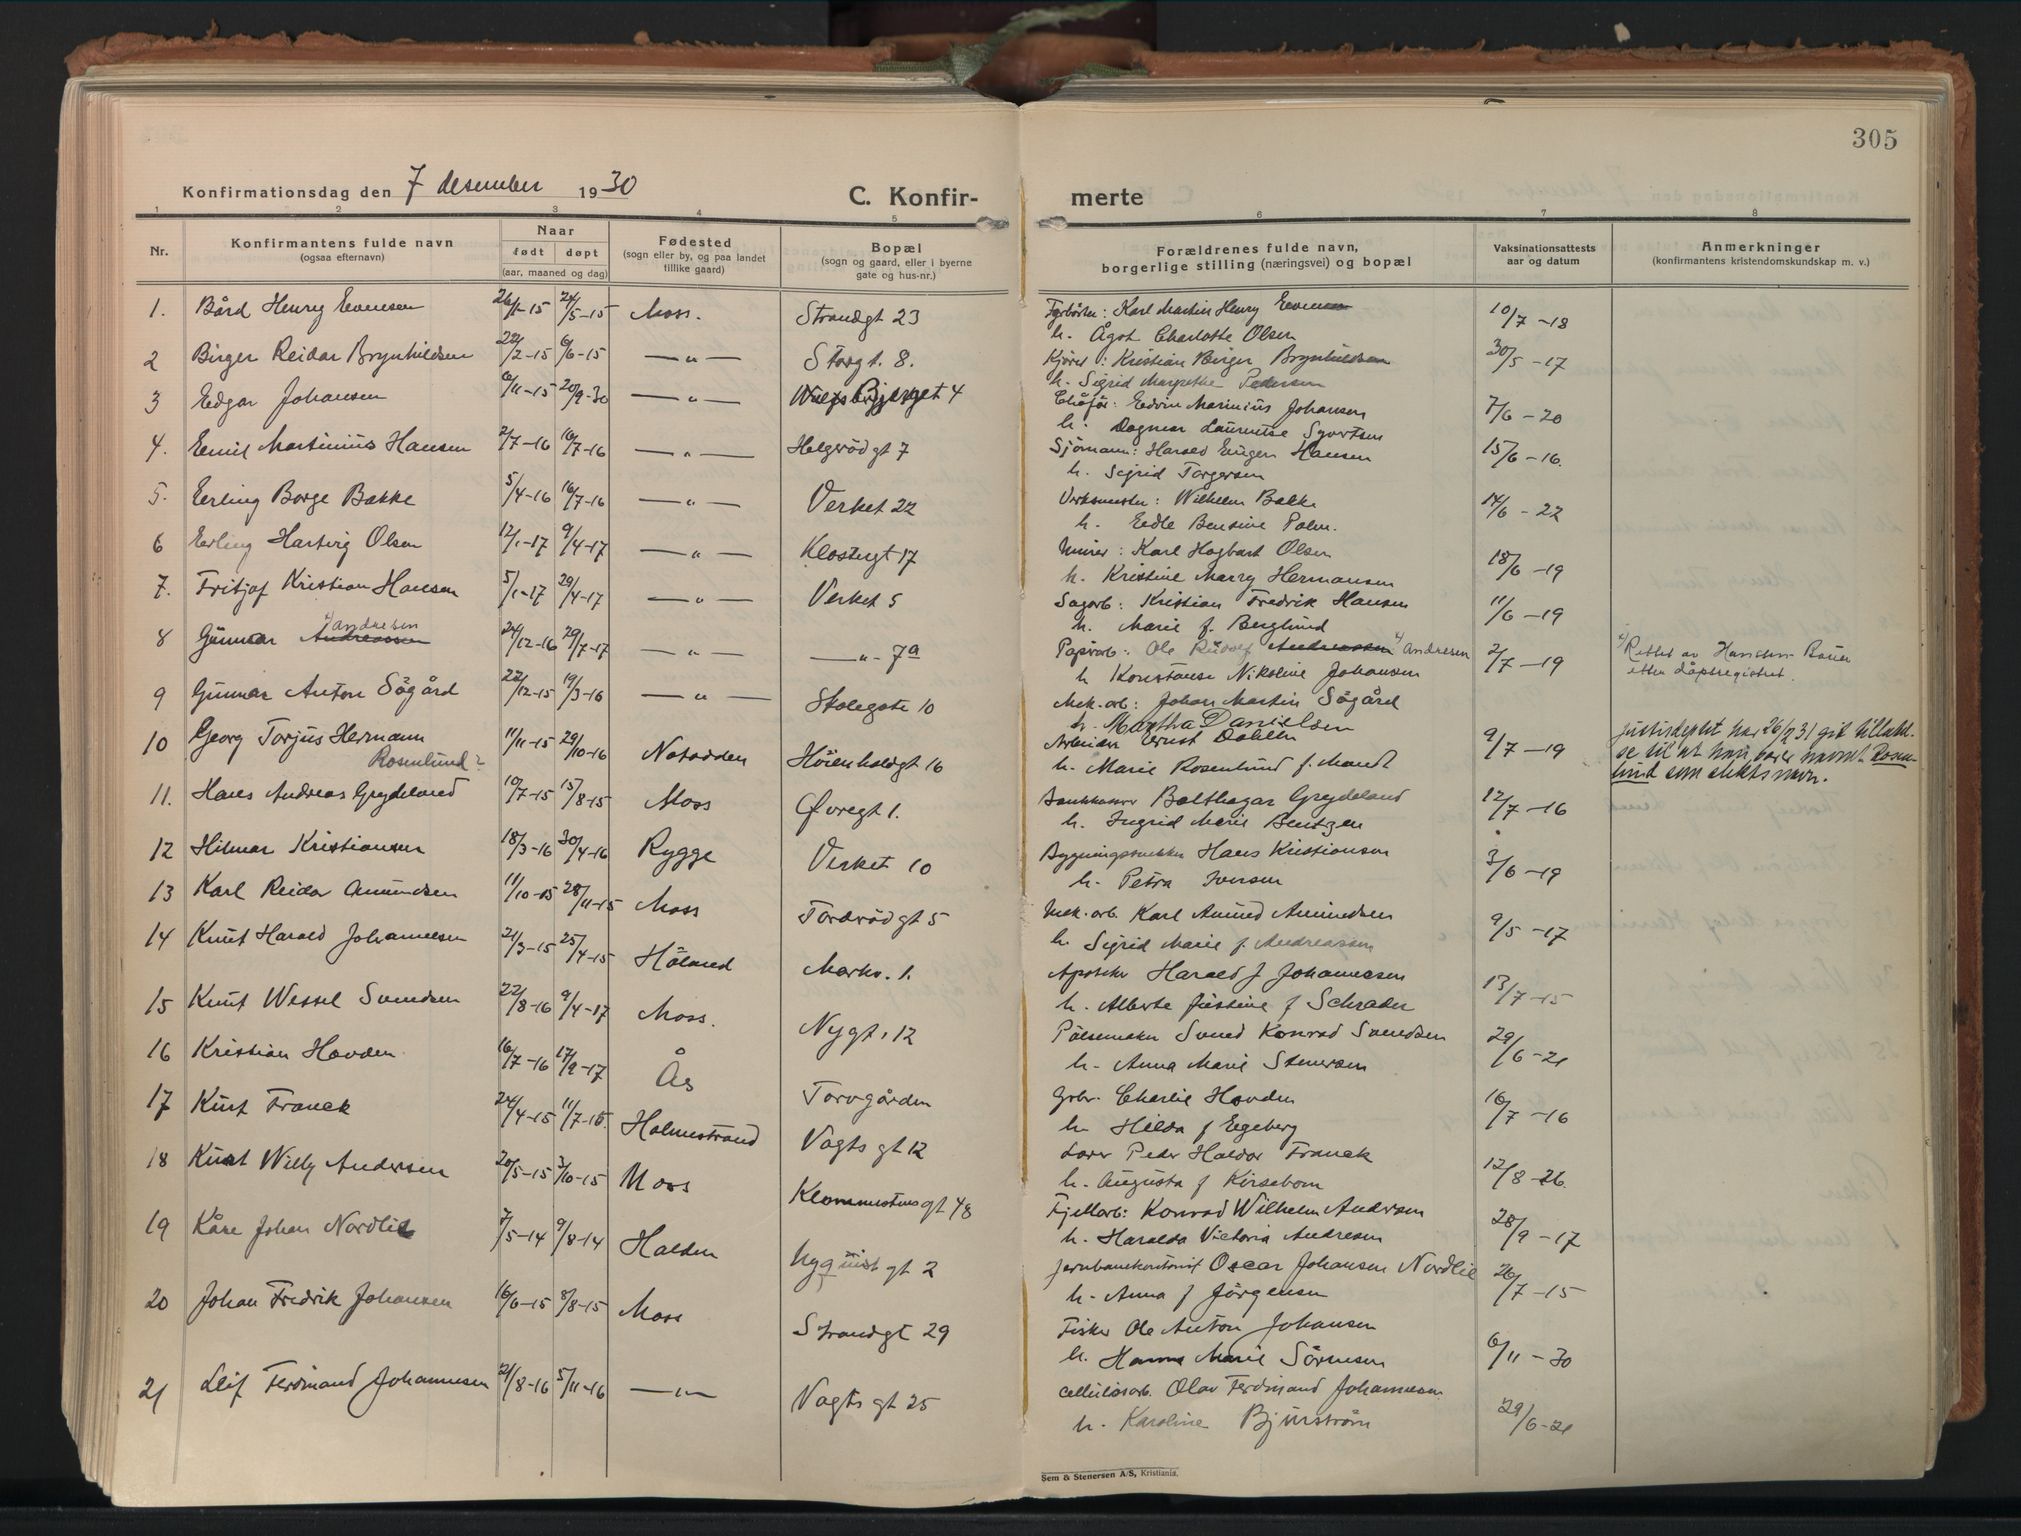 305
Konfirmationsdag den 7 desember 1930
C. Konfir- merte
1 2 3 4 5 6 7 8
Nr. Konfirmantens fulde navn (ogsaa efternavn) Naar født døpt (aar, maaned og dag) Fødested (sogn eller by, og paa landet tillike gaard) Bopæl (sogn og gaard, eller i byerne gate og hus-nr.) Forældrenes fulde navn, borgerlige stilling (næringsvei) og bopæl Vaksinationsattests aar og datum Anmerkninger (konfirmantens kristendomskundskap m. v.)
1. Bård Henry Evensen 26/1-15 24/5-15 Moss. Strandgt 23 Karl Martin Henry Evensen 10/7-18
h. Ågot Charlotte Olsen
2 Birger Reidar Brynhildsen 22/2-15 6/6-15 —„— Storgt. 8. Kjører: Kristian Birger Brynhildsen 30/5-17
h. Sigrid Margrethe Pedersen
3 Edgar Johansen 6/11-15 20/9-30 —„— 4 Chåför: Edvin Marinius Johansen 7/6-20
h. Dagmar Lauentse Syvertsen
4. Emil Martinius Hansen 2/7-16 16/7-16 —„— Helgerödgt 7 Sjömann: Harald Eugen Hansen 15/6-16.
h. Sigrid Torgersen
5. Erling Borge Bakke 5/4-16 16/7-16 —„— Verket 22 Verksmester: Wilhelm Bakke 14/6-22
h. Edle Bensine Palm.
6 Erling Hartvig Olsen 12/1-17 9/4-17 —„— Klostergt 17 Murer: Karl Hagbart Olsen 18/6-19
h. Kristine Marry Hermansen
7. Fritjof Kristian Hansen 5/1-17 29/4-17 —„— Verket 5 Sagarb: Kristian Fredrik Hansen 11/6-19
h. Marie f. Berglund
8 Gunnar Andreassen 1) Andresen 24/12-16 29/7-17 —„— —„— 7a Papirarb: Ole Rudolf Andreassen 1) Andresen 2/7-19 1) Rettet av
h Konstanse Nikoline Johansen etter dåpsregistret.
9 Gunnar Anton Sögård 22/12-15 19/3-16 —„— Stolegate 10 Mek.arb: Johan Martin Sögård
h. Martha Danielsen
10 Georg Torjus Hermann Rosenlund? 11/11-15 29/10-16 Notodden Höienholdgt 16 Arbeider Ernst Dahlen 9/7-19 Justisdeptet har 26/2 31 git tillatel-
h. Marie Rosenlund f. Mandt se til at han bærer navnet Rosen-
lund som slektsnavn.
11. Hans Andreas Grydeland 10/7-15 15/8-15 Moss Øvregt 1. Bankkasser Balthazar Grydeland 12/7-16
h. Ingrid Marie Bentzen
12 Hilmar Kristiansen 18/3-16 30/4-16 Rygge Verket 10 Bygningssnekker Hans Kristiansen 3/6-19
h. Petra Iversen
13 Karl Reidar Amundsen 11/10-15 28/11-15 Moss Tordrödgt 5 Mek.arb. Karl Amund Amundsen 9/5-17
h. Sigrid Marie f Andreassen
14 Knut Harald Johannesen 21/3-15 25/4-15 Höland Markv. 1. Apoteker Harald J Johannesen 13/7-15
h. Alberte Justine f Schrader
15 Knut Wessel Svendsen 22/8-16 9/4-17 Moss. Nygt. 12 Pölsemaker Svend Konrad Svendsen 29/6-21
h. Anna Marie Stenersen
16 Kristian Hovden 16/7-16 17/2-17 Ås Torvgården Grbr. Charlie Hovden 16/7-16
h. Hilda f Engeberg
17 Kurt Franck 24/4-15 11/7-15 Holmestrand Vogts gt 12 Lærer Peder Haldor Franck 12/8-26.
h. Augusta f Kirsebom
18 Kurt Willy Andersen 20/5-15 3/10-15 Moss gt 48 Fjellarb: Konrad Wilhelm Andersen 28/9-17
h. Haralda Victoria Andresen
19 Kåre Johan Nordlie 7/5-14 9/8-14 Halden Nyquist gt 2 Jernbanekontorist Oscar Johansen Nordlie 26/7-15
h. Anna f Jörgensen
20 Johan Fredrik Johansen 16/6-15 8/8-15 Moss Strandgt 29 Fisker Ole Anton Johansen 6/11-30
h. Hanna Marie Sörensen
21 Leif Ferdinand Johannesen 21/8-16 5/11-16 —„— Vogts gt 25 Cellulosarb. Olav Ferdinand Johannesen 29/6-21
h. Karoline Bjurström
Sem & Stenersen A/S, Kristiania.